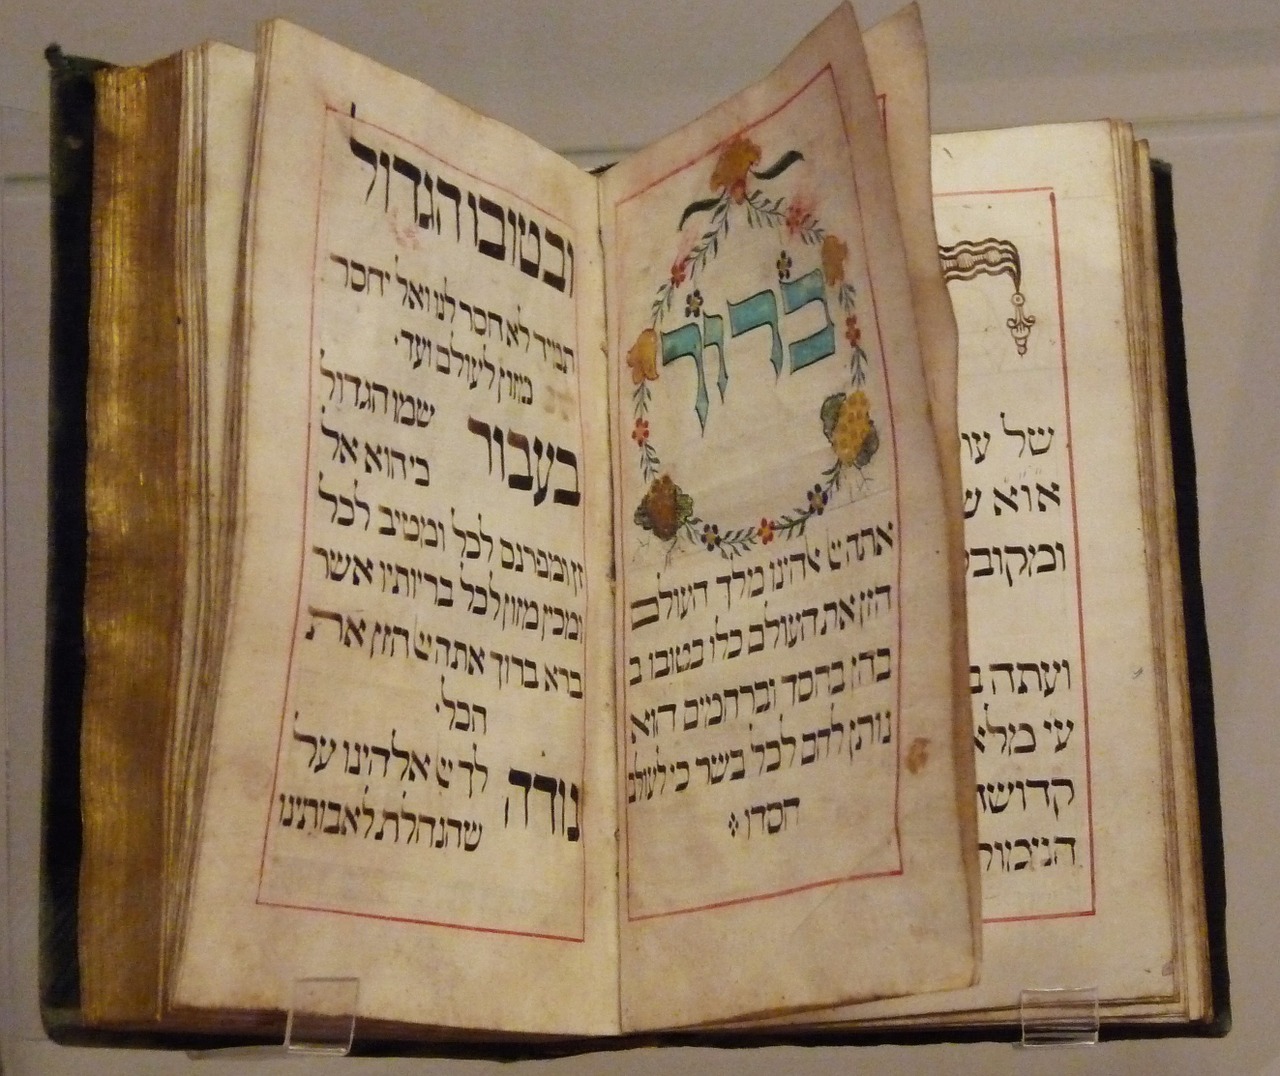 של
ועתה
ברוך
אתה אלהינו מלך העולם
הזן את העולם כלו בטובו ב
בחן בחסד וברחמים הוא
נותן להם לכל בשר כי לעולם
חסדו
ובטובו הגדול
תמיד לא חסר לנו ואל יחסר
מזון לעולם ועד·
בעבור שמו הגדול
כי הוא אל
זן ומפרנס לכל ומטיב לכל
ומכין מזון לכל בריותיו אשר
ברא ברוך אתה הזן את
הכל·
נודה לך אלהינו על
שהנחלת לאבותינו